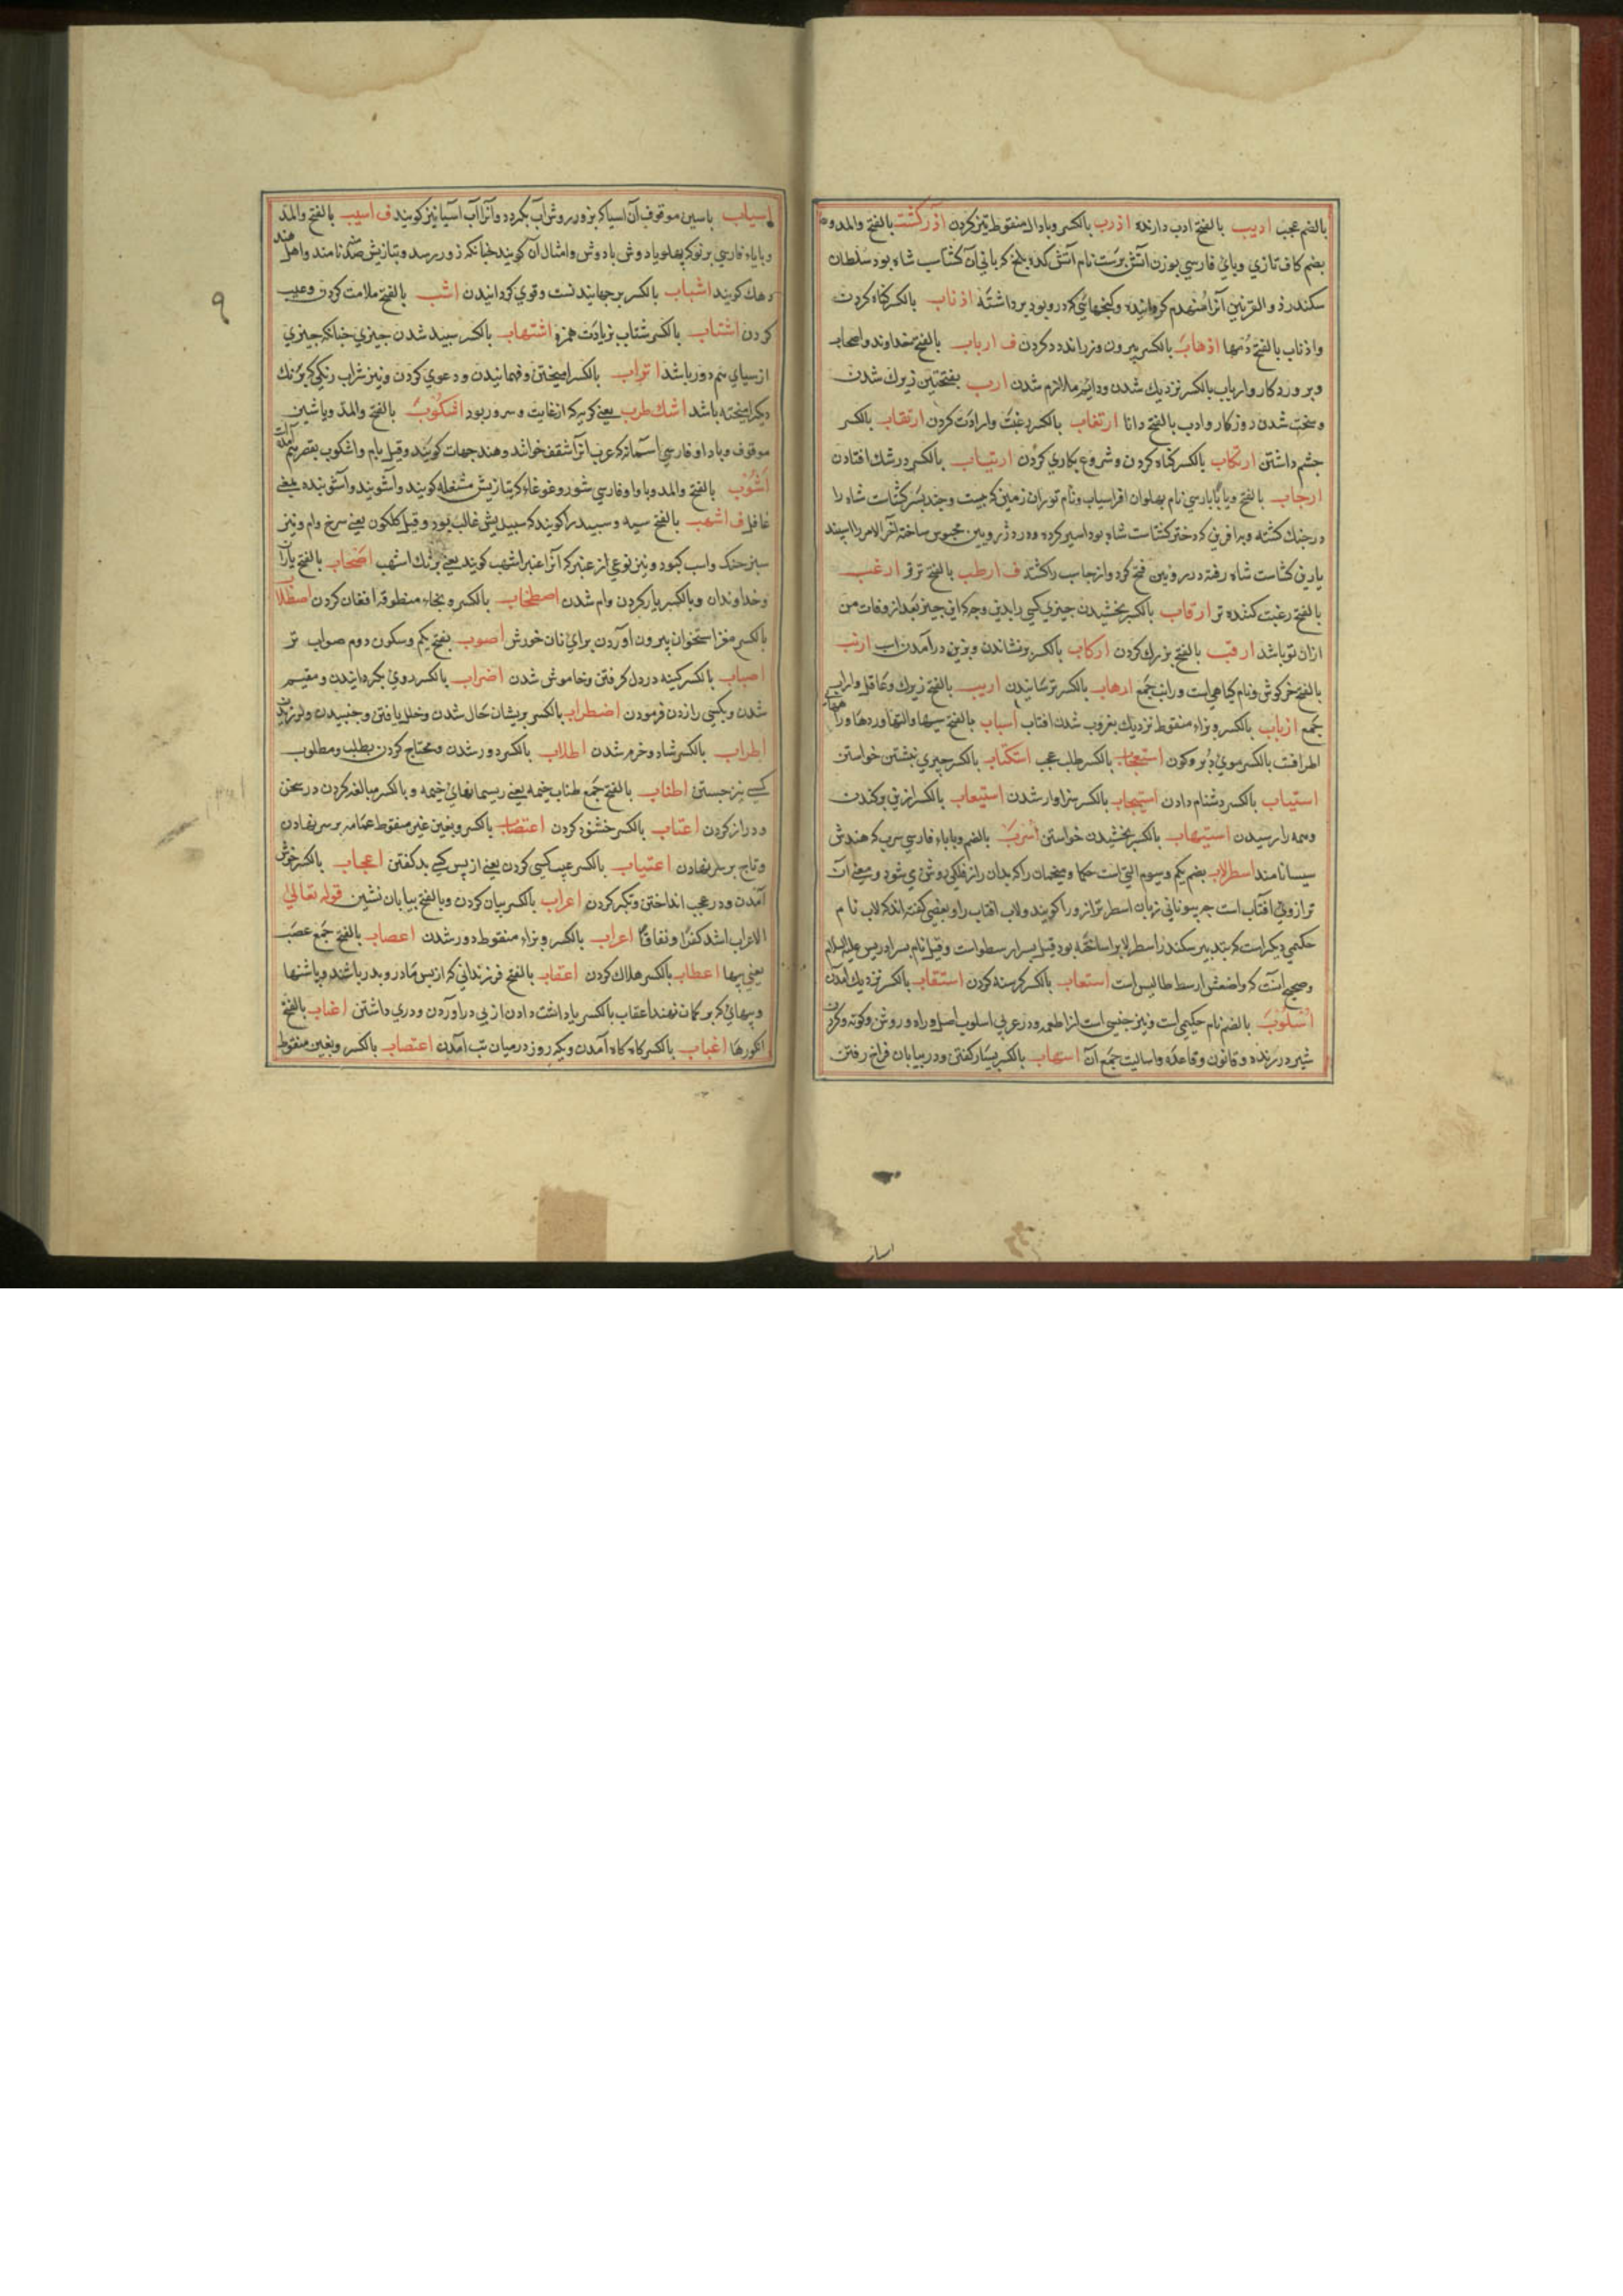 بالضم عجب ادیب بالفتح ادب دارنده اذرب بالکسر وبا دال منقوط تیز کردن اذرگشت بالفتح والمد و
بضم کاف تازی وبای فارسی بوزن آتش پرست نام آتش کده بلخ که بانی آن کشتاسب شاه بود سلطان
سکندر ذو القرنین آنرا منهدم گردانیده و گنجهائی که درو بود برداشته اذناب بالکسر گناه کردن
واذناب بالفتح دمها اذهاب بالکسر بیرون وزر اندود کردن ف ارباب بالفتح خداوند واصحاب
وپروردگار وارباب بالکسر نزدیک شدن ودایم ملازم شدن ارب بفتحتین زیرک شدن
وسخت شدن روزکار وادب بالفتح دانا ارتغاب بالکسر رغبت وارادت کردن ارتقاب بالکسر
چشم داشتن ارتکاب بالکسر گناه کردن وشروع بکاری کردن ارتیاب بالکسر در شک افتادن
ارجاب بالفتح وبا با پارسی نام پهلوان افراسیاب ونام توران زمین که چیست وچند پسر کشتاسب شاه را
در جنک کشته وبه افرین که دختر کشتاسب شاه بود اسیر کرده ودر دژ رویین محبوس ساخته آخر الامر را اسپند
یارین کشتاسب شاه رفته دز رویین فتح کرد وارجاسب را کشت ف ارطب بالفتح ترتر ارغب
بالفتح رغبت کننده تر ارقاب بالکسر بخشیدن چیزی کسی را بدین وجه که این چیز بعد از وفات من
ازان تو باشد ارقب بالفتح بزرک کردن ارکاب بالکسر برنشاندن وبزین درآمدن اسب ارنب
بالفتح خرکوش ونام کیاهی است ورانب جمع ارهاب بالکسر ترسانیدن اریب بالفتح زیرک وعاقل واراب
جمع ازباب بالکسر وبزاء منقوط نزدیک بغروب شدن افتاب اسباب بالفتح سببها والتها وردها وراهها
اطرافت بالکسر موی دبر وکون استعجاب بالکسر طلب عجب استکتاب بالکسر چیزی نبشتن خواستن
استیاب بالکسر دشنام دادن استیجاب بالکسر سزاوار شدن استیعاب بالکسر از بن برکندن
وهمه را رسیدن استیهاب بالکسر بخشیدن خواستن اسرب بالضم وبا باء فارسی سرب که هندش
سیسا نامند اسطرلاب بضم یکم وسیوم التی است حکما ومنجمان را که بدان راز فلکی روشن می شود ومعنی آن
ترازوی افتاب است چه بیونانی زبان اسطر ترازو را کویند ولاب افتاب را وبعضی گفته اند که لاب نام
حکیمی دیگر است که بتدبیر سکندر اسطرلاب را ساخته بود قیل پسر ارسطو است وقیل نام پسر ادریس علیه السلام
وصحیح آنست که واضعش ارسطاطالیس است استعاب بالکسر کرسنه کردن استقاب بالکسر نزدیک آمدن
اسلوب بالضم نام حکیمی است ونیز جنسی است از اطعمه ودر عربی اسلوب اصل وراه وروش وکوته وکردن
شیر درنده وقانون وقاعده واسالیب جمع آن اسهاب بالکسر بسیار گفتن ودر بیابان فراخ رفتن
اسیاب با سین موقوف آن اسیا که بزور روش آب بگردد وآنرا آب آسیا نیز کویند ف اسیب بالفتح والمد
وبا یاء فارسی برتوکه پهلو یا دوش با دوش وامثال آن کویند چنانکه زور رسد وبتازیش صدمه نامند واهل هند
دهک کویند اشباب بالکسر برجهانیدن است وقوی کردانیدن اشب بالفتح ملامت کردن وعیب
کردن اشتاب بالکسر شتاب بزیادت همزه اشتهاب بالکسر سپید شدن چیزی چنانکه چیزی
از سیاهی هم دور باشد اتراب بالکسر امیختن وفهمانیدن ودعوی کردن ونیز شراب رنکی که برنک
دیکر امیخته باشد اشک طرب یعنی کریه که از غایت وسرور بود اشکوب بالفتح والمد وبا شین
موقوف وبا واو فارسی آسمانه که عرب آنرا سقف خوانند وهند چهات کویند وقیل بام واشکوب بقصر هم آمده است
آشوب بالفتح والمد وبا واو فارسی شور وغوغا که بتازیش مشغله کویند وآشویند وآشوبنده یعنی
غافل ف اشهب بالفتح سیه وسپید را کویند که سپیدیش غالب بود وقیل کلکون یعنی سرخ وام ونیز
سبز خنک واسب کبود ونیز نوعی از عنبر که آنرا عنبر اشهب کویند یعنی برنک اشهب اصحاب بالفتح یاران
وخداوندان وبالکسر یار کردن وام شدن اصطخاب بالکسر وبخاء منطوقه افغان کردن اصطلاب
بالکسر مغز استخوان بیرون آوردن برای نان خورش اصوب بفتح یکم وسکون دوم صواب تر
اصباب بالکسر کینه در دل کرفتن وخاموش شدن اضراب بالکسر روی بکردانیدن ومقیم
شدن وبکسی را زدن فرمودن اضطراب بالکسر پریشان حال شدن وخلل یافتن وجنبیدن ولرزیدن
اطراب بالکسر شاد وخرم شدن اطلاب بالکسر دور شدن ومحتاج کردن بطلب ومطلوب
کسی نیز جستن اطناب بالفتح جمع طناب خیمه یعنی ریسمانهای خیمه وبالکسر مبالغه کردن در سخن
ودراز کردن اعتاب بالکسر خشنود کردن اعتصاب بالکسر وبعین غیر منقوط عمامه بر سر نهادن
وتاج بر سر نهادن اعتیاب بالکسر عیب کسی کردن یعنی از پس کسی بد کفتن اعجاب بالکسر خوش
آمدن ودر عجب انداختن وتکبر کردن اعراب بالکسر بیان کردن وبالفتح بیابان نشین قوله تعالی
الاعراب اشد کفرا ونفاقا اعزاب بالکسر وبزاء منقوط دور شدن اعصاب بالفتح جمع عصب
یعنی پیها اعطاب بالکسر هلاک کردن اعقاب بالفتح فرزندانی که از پس مادر وپدر باشند وپاشنها
وپیهای که بر کمان نهند اعقاب بالکسر پاداشت دادن از پی درآوردن ودری داشتن اعناب بالفتح
انکورها اغباب بالکسر کاه کاه آمدن ویک روز در میان تب آمدن اعتصاب بالکسر وبغین منقوط
۹